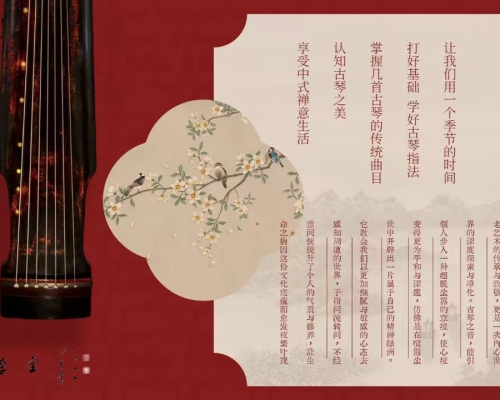 让我们用一个季节的时间
打好基础 学好古琴指法
掌握几首古琴的传统曲目
认知古琴之美
享受中式禅意生活
老艺术的传承与致敬，更是一次内心世
界的深度探索与净化。古琴之音，能引
领人步入一种超脱尘嚣的意境，使心境
变得更为平和与深邃，仿佛是在喧嚣尘
世中开辟出一片属于自己的精神绿洲。
它教会我们以更加细腻与敏感的心态去
感知周遭的世界，于指间流转间，不经
意间便提升了个人的气质与修养，让生
命之树因这份文化底蕴而愈发枝繁叶茂